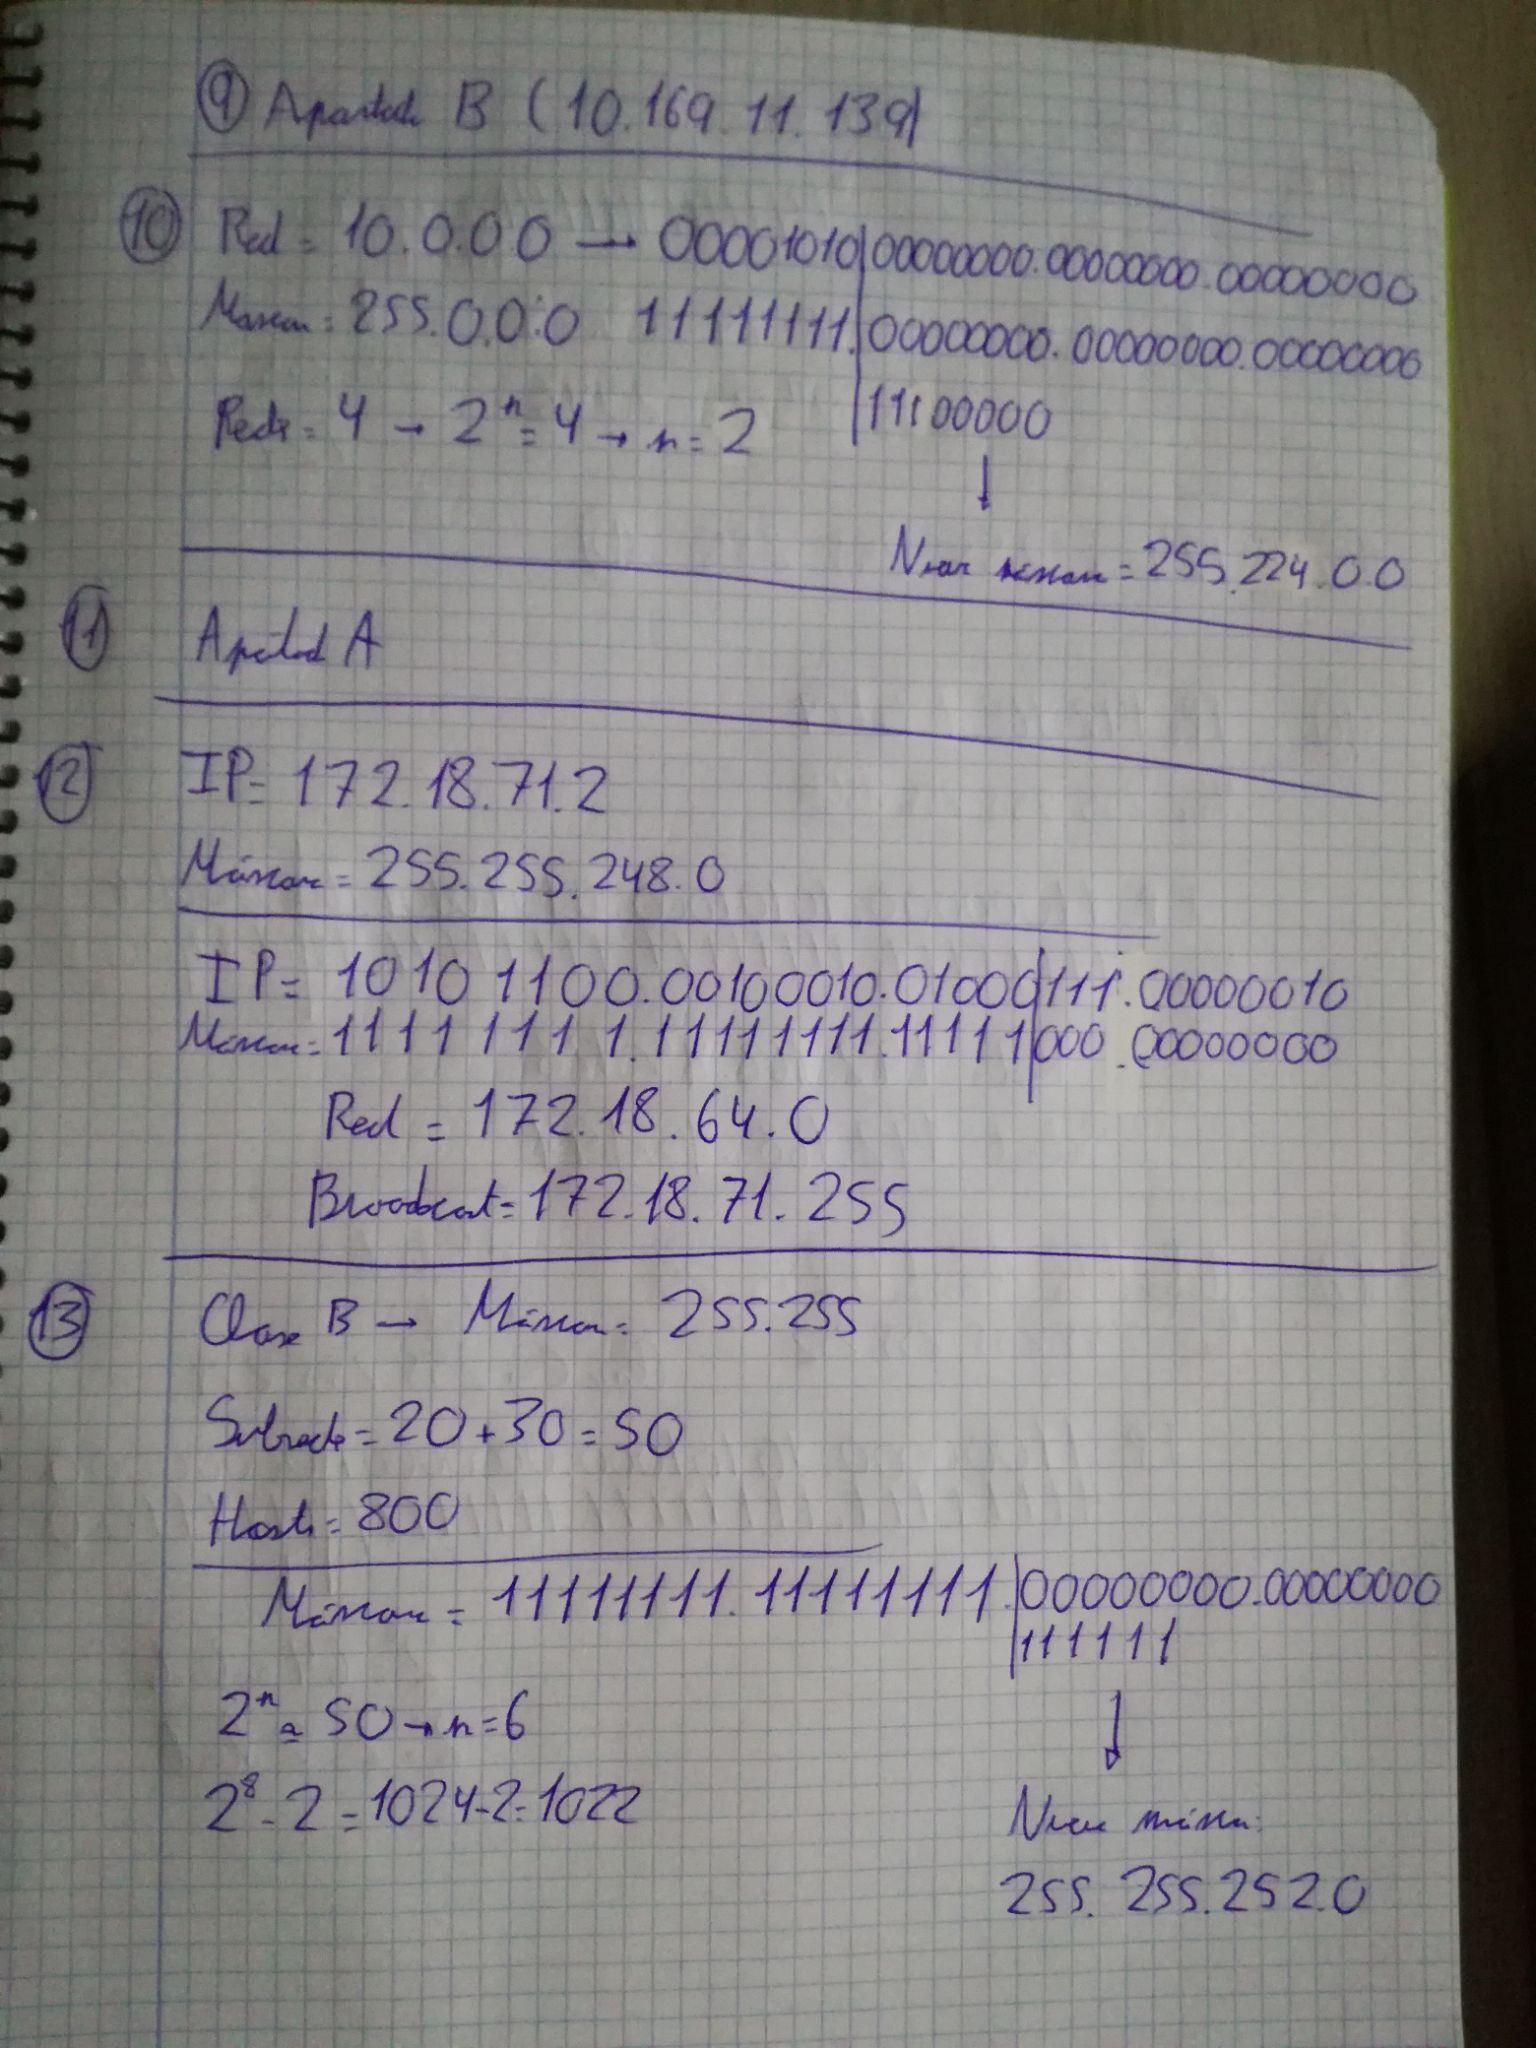 9 Apartado B (10.169.11.139)
10 Red = 10.0.0.0 → 00001010 | 00000000.00000000.00000000
Máscara = 255.0.0.0 11111111. | 00000000.00000000.00000000
Redes = 4 → 2ⁿ = 4 → n = 2 | 11100000
↓
Nueva máscara = 255.224.0.0
11 Apartado A
12 IP = 172.18.71.2
Máscara = 255.255.248.0
IP = 10101100.00100010.01000 | 111.00000010
Máscara = 11111111.11111111.11111 | 000.00000000
Red = 172.18.64.0
Broadcast = 172.18.71.255
13 Clase B → Máscara = 255.255
Subredes = 20 + 30 = 50
Hosts = 800
Máscara = 11111111.11111111. | 00000000.00000000
| 111111
↓
2ⁿ ≈ 50 → n = 6
2⁸ - 2 = 1024 - 2 = 1022
Nueva máscara:
255.255.252.0